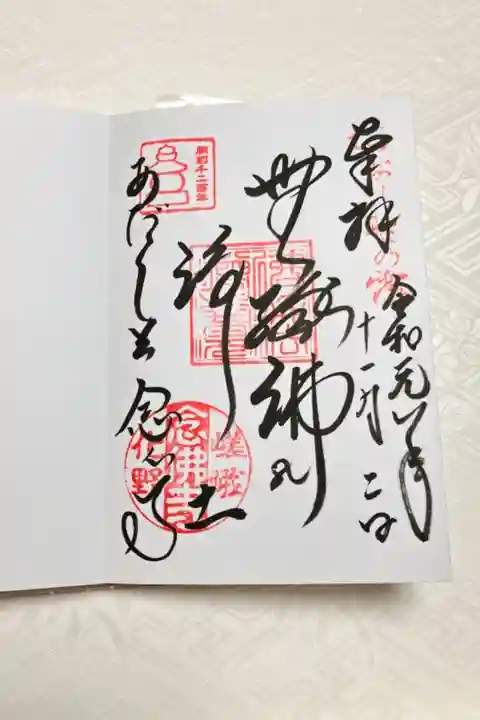 奉拝
令和元年
十一月二日
無縁佛乃
浄土
開創千二百年
あだし野 念佛寺
嵯峨
念佛寺
化野